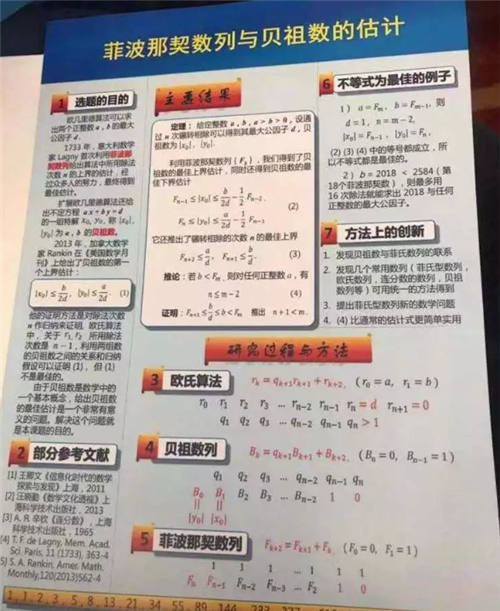 菲波那契数列与贝祖数的估计
1 选题的目的
欧几里德算法可以求
出两个正整数 a, b 的最大
公因子 d。
1733 年,意大利数学
家 Lagny 首次利用菲波那
契数列给出算法中所用除法
次数 n 的上界的估计,经
过众多人的努力,最终得到
最佳估计。
扩展欧几里德算法还给
出不定方程 ax + by = d
的一组特解 x₀, y₀, 称 |x₀|,
|y₀| 为 a, b 的贝祖数。
2013 年,加拿大数学
家 Rankin 在《美国数学月
刊》上给出了贝祖数的第一
个上界估计:
|x₀| ≤ b/2d, |y₀| ≤ a/2d (1)
他的证明方法是对除法次数
n 作归纳来证明. 欧氏算法
中,关于 r₁, r₂ 所用除法
次数是 n − 1,利用两组数
的贝祖数之间的关系和归纳
假设可以证明 (1),但 (1)
不是最佳的。
由于贝祖数是数学中的
一个基本概念,给出贝祖数
的最佳估计是一个非常有意
义的问题。解决这个问题就
是本课题的目的。
2 部分参考文献
[1] 王鄂文《信息化时代的数学
探索与发现》上海,2011
[2] 汪晓勤《数学文化透视》上
海科学技术出版社,2013
[3] А. Я. 辛钦《连分数》,上海
科学技术出版社,1965
[4] T. F. de Lagny, Mem. Acad.
Sci. Paris, 11 (1733), 363-4
[5] S. A. Rankin, Amer. Math.
Monthly,120(2013)562-4
主要结果
定理:给定整数 a, b, a > b > 0, 设通
过 n 次辗转相除可以得到其最大公因子 d,贝
祖数为 |x₀|, |y₀|.
利用菲波那契数列 { Fₖ },我们得到了贝
祖数的最佳上界估计,同时还得到贝祖数的最
佳下界估计
Fₙ₋₁ ≤ |x₀| ≤ b/2d − 1/2 Fₙ₋₂,
(2)
Fₙ ≤ |y₀| ≤ a/2d − 1/2 Fₙ₋₁.
它还推出了辗转相除的次数 n 的最佳上界
Fₙ₊₂ ≤ a/d, Fₙ₊₁ ≤ b/d. (3)
推论:若 b < Fₘ, 则对任何正整数 a,有
n ≤ m − 2 (4)
证明:Fₙ₊₁ ≤ b/d ≤ b < Fₘ 推出 n + 1 < m.
研究过程与方法
3 欧氏算法 rₖ = qₖ₊₁rₖ₊₁ + rₖ₊₂, (r₀ = a, r₁ = b)
r₀ r₁ r₂ r₃ … rₙ₋₂ rₙ₋₁ rₙ = d rₙ₊₁ = 0
q₁ q₂ q₃ … qₙ₋₂ qₙ₋₁ qₙ > 1
4 贝祖数列 Bₖ = qₖ₊₁Bₖ₊₁ + Bₖ₊₂, (Bₙ = 0, Bₙ₋₁ = 1)
q₁ q₂ q₃ … qₙ₋₂ qₙ₋₁ qₙ
B₀ B₁ B₂ B₃ … Bₙ₋₂ 1 0
|| ||
|y₀| |x₀|
5 菲波那契数列 Fₖ₊₂ = Fₖ₊₁ + Fₖ, (F₀ = 0, F₁ = 1)
1 1 1 … 1 1 1
Fₙ Fₙ₋₁ Fₙ₋₂ Fₙ₋₃ … F₂ 1 0
6 不等式为最佳的例子
1 ) a = Fₘ, b = Fₘ₋₁, 则
d = 1, n = m − 2,
|x₀| = Fₙ₋₁, |y₀| = Fₙ.
(2) (3) (4) 中的等号都成立,所
以不等式都是最佳的。
2 ) b = 2018 < 2584 ( 第
18个菲波那契数 ),则最多用
16 次除法就能求出 2018 与任何
正整数的最大公因子。
7 方法上的创新
1. 发现贝祖数与菲氏数列的联系
2. 发现几个常用数列(菲氏型数列,
欧氏数列,连分数的数列,贝祖
数列等)可用统一的方法得到
3. 提出菲氏型数列新的数学问题
4. (4) 比通常的估计式更简单实用
1, 1, 2, 3, 5, 8, 13, 21, 34, 55, 89, 144, 233, 377